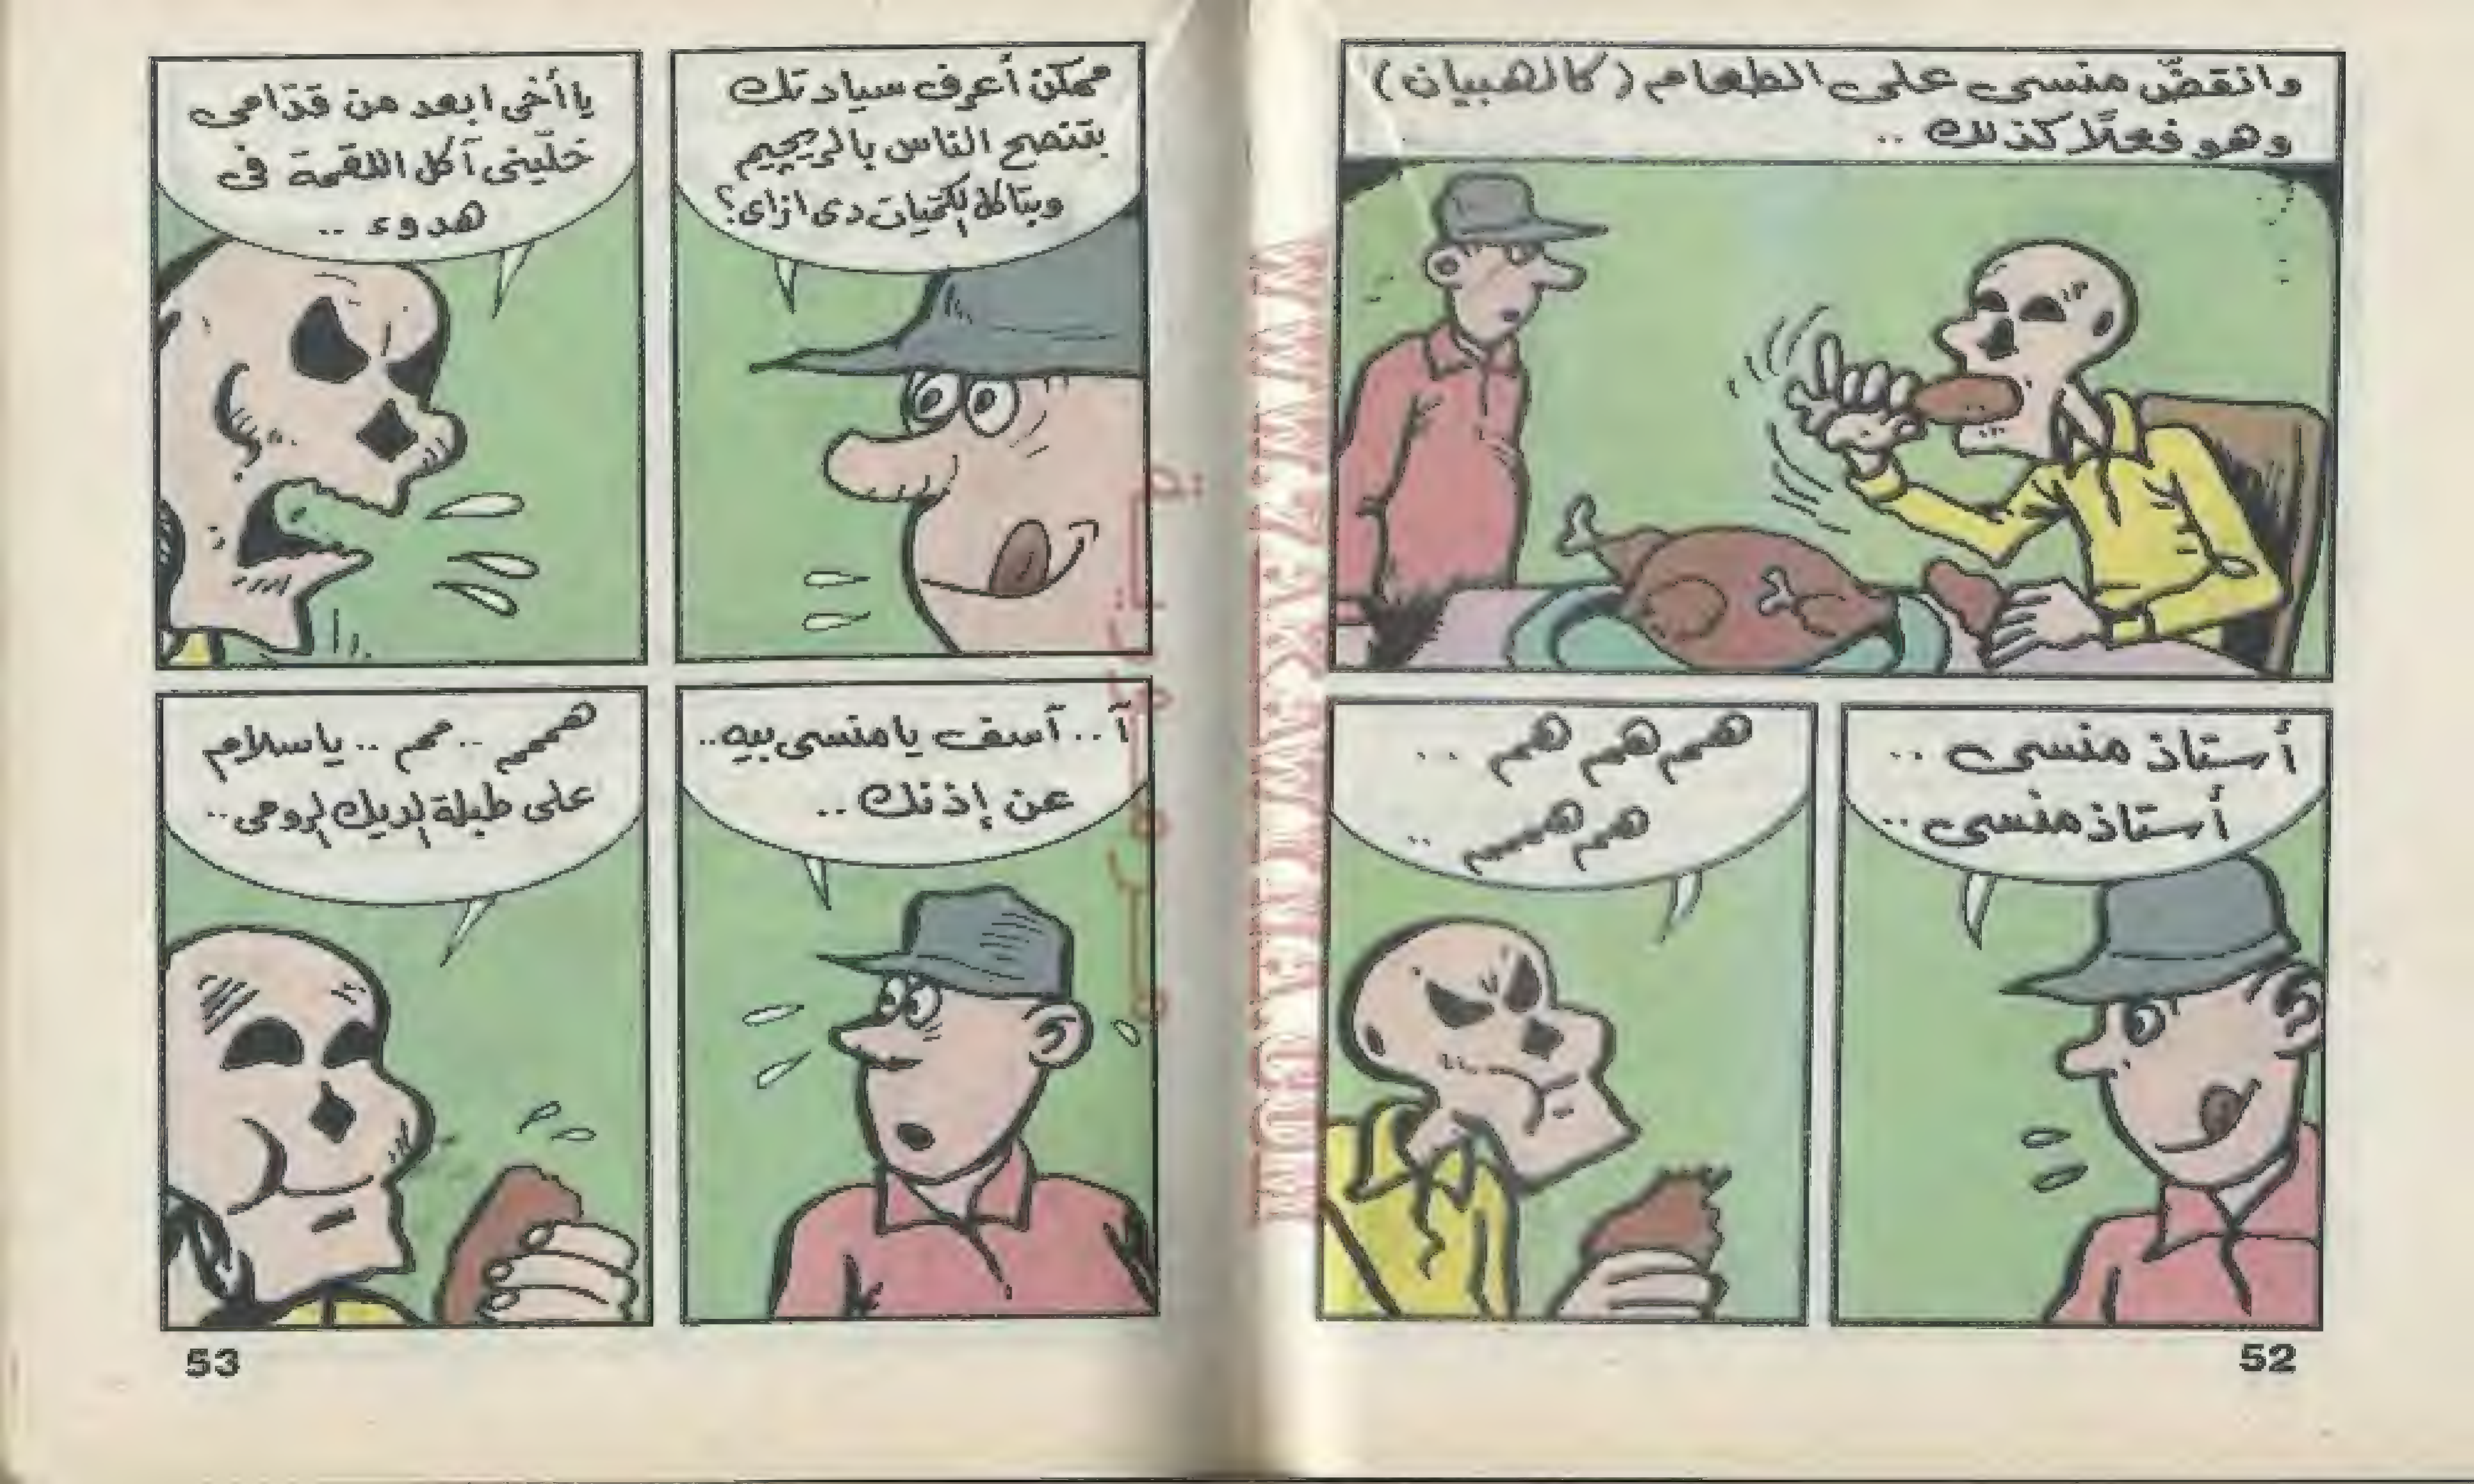 وانقضّ منسى على الطعام (كالهبيان)
وهو فعلًا كذلك ..
أستاذ منسى ..
أستاذ منسى ..
همم همم همم ..
همم همممم ..
52
ممكن أعرف سيادتك
بتنصح الناس بالريچيم
وبتاكل الكميات دى ازاى؟
يا أخى ابعد من قدّامى
خلّينى آكل اللقمة فى
هدوء ..
آ .. آسف يا منسى بيه ..
عن إذنك ..
همممم .. مم .. يا سلام
على طبلة الديك الرومى ..
53
WWW.ARKAWYINUA.COM